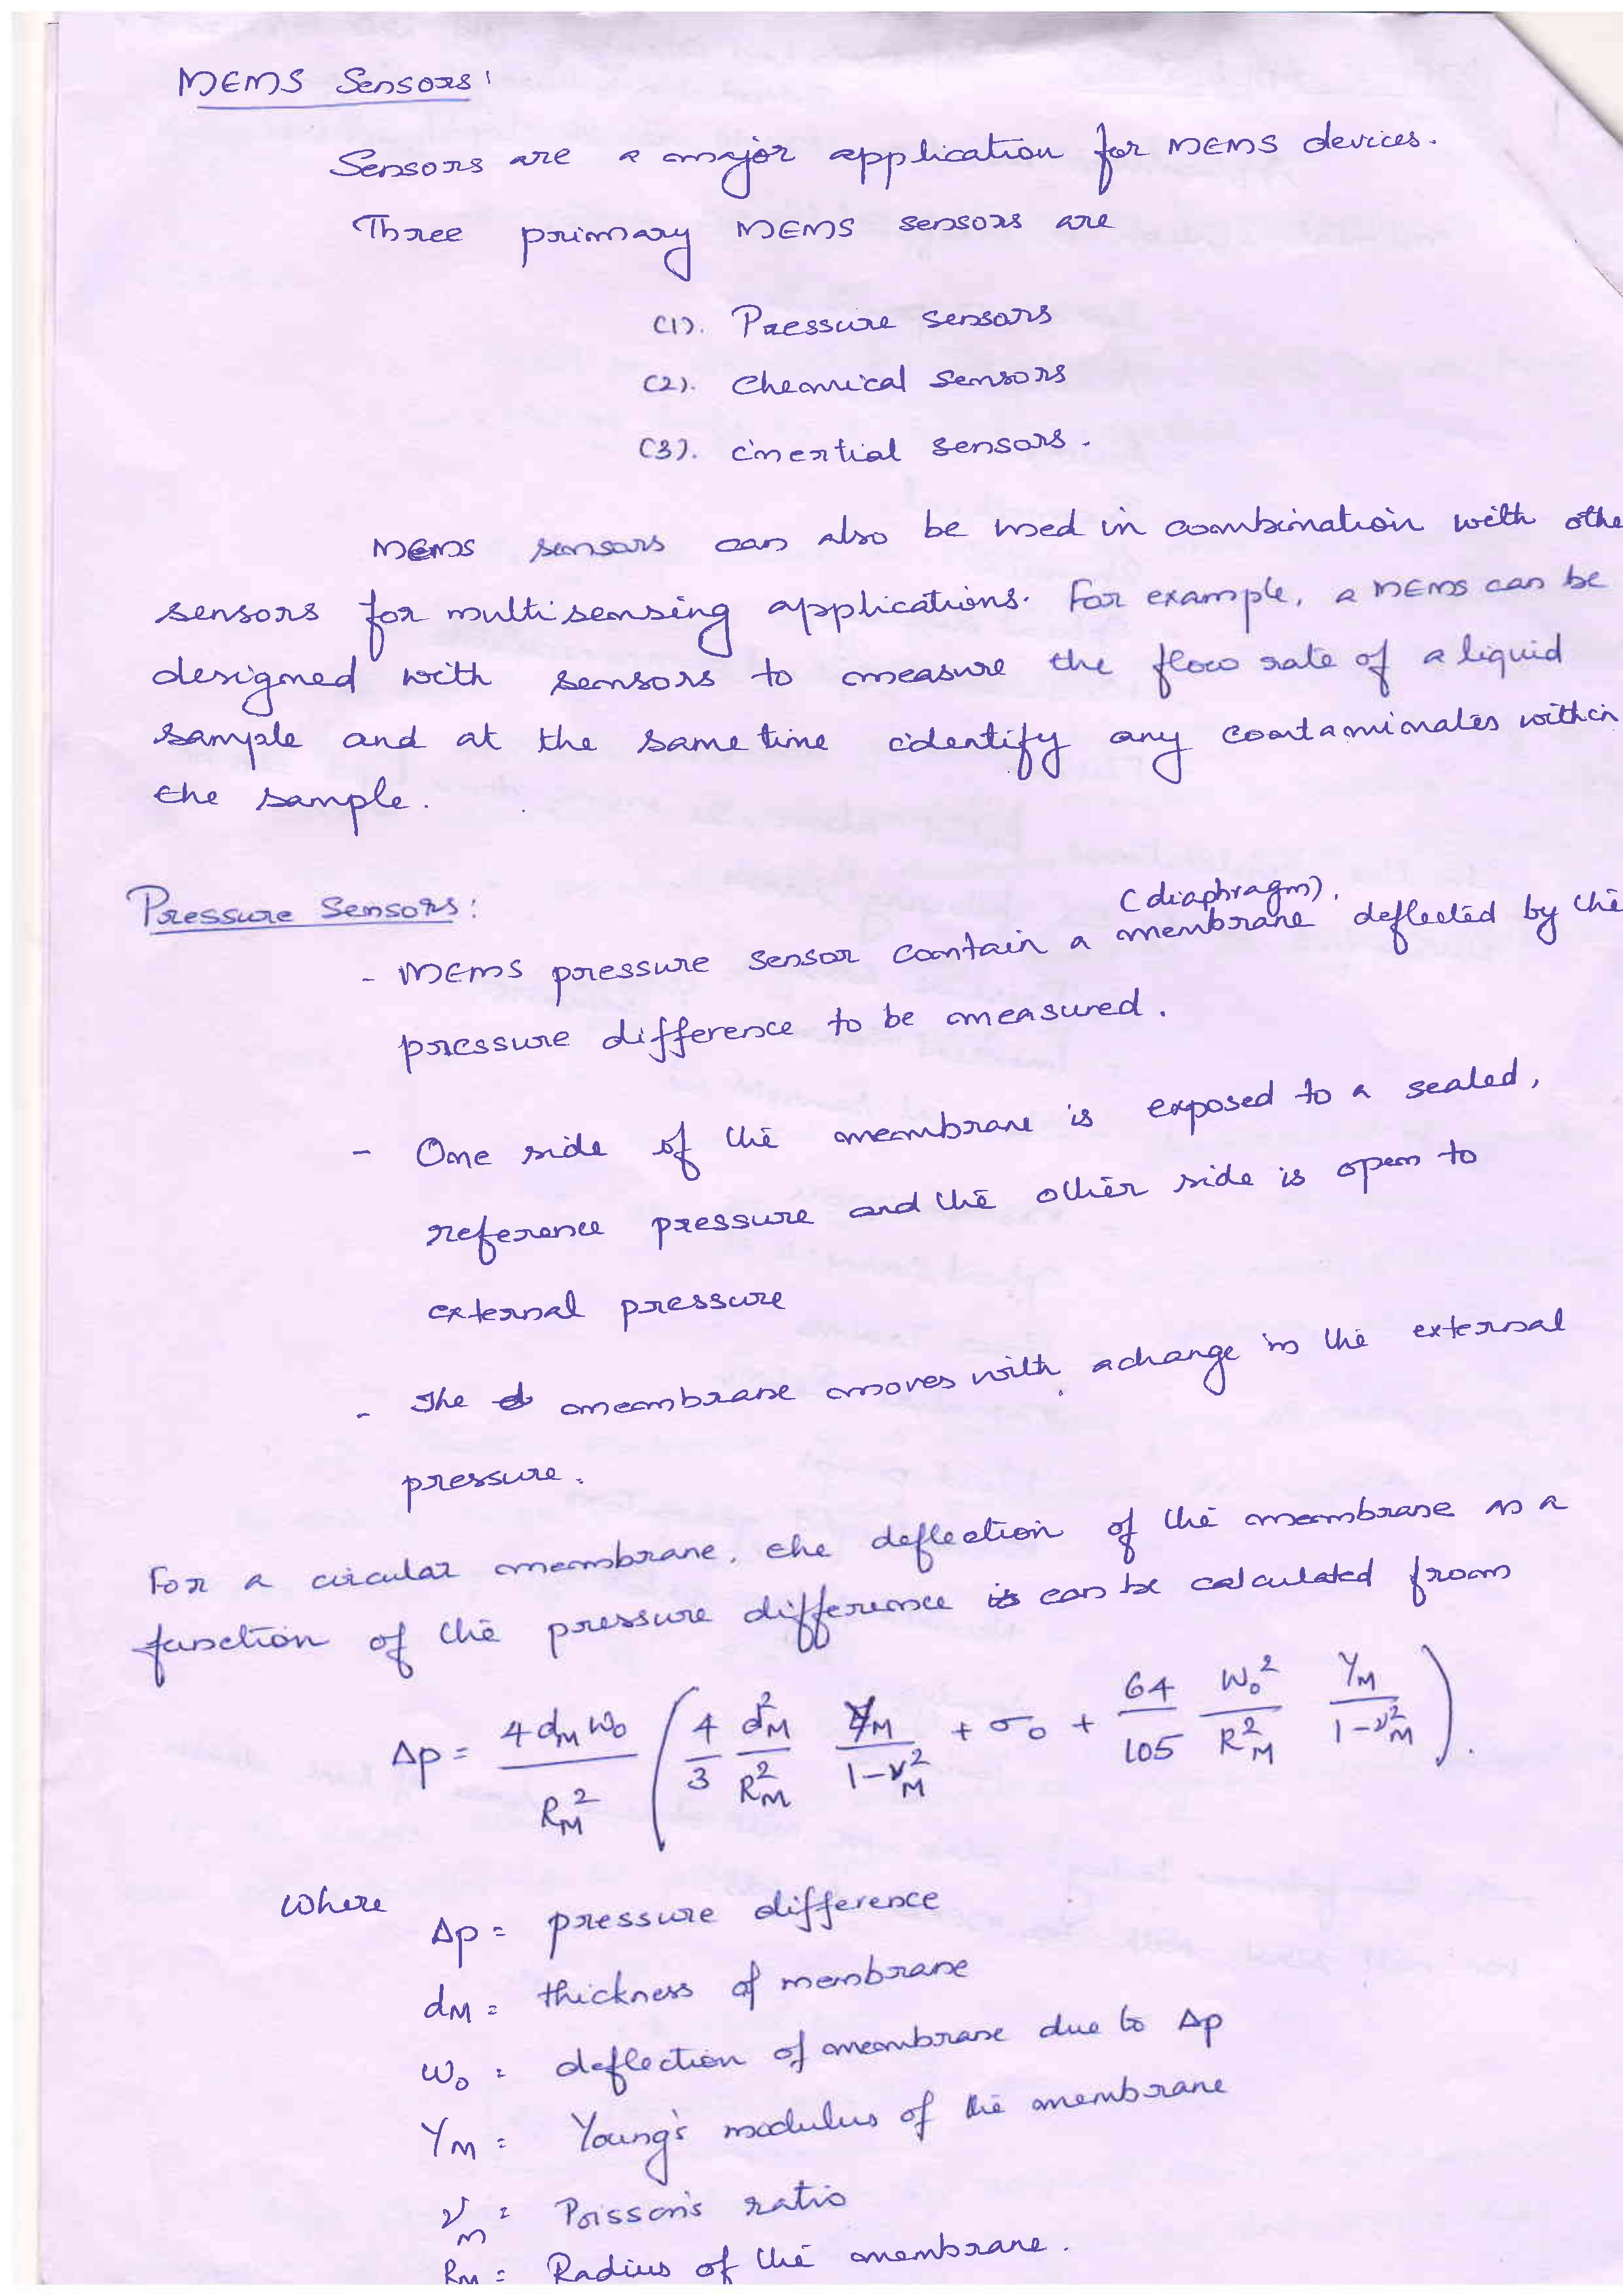 MEMS Sensors:
Sensors are a major application for MEMS devices.
Three primary MEMS sensors are
(1). Pressure sensors
(2). Chemical sensors
(3). inertial sensors.
MEMS sensors can also be used in combination with othe
sensors for multisensing applications. For example, a MEMS can be
designed with sensors to measure the flow rate of a liquid
sample and at the same time identify any contaminates within
the sample.
Pressure Sensors:
(diaphragm).
- MEMS pressure sensor contain a membrane deflected by the
pressure difference to be measured.
- One side of the membrane is exposed to a sealed,
reference pressure and the other side is open to
external pressure
- The membrane moves with a change in the external
pressure.
For a circular membrane, the deflection of the membrane as a
function of the pressure difference can be calculated from
Δp = 4 d_M w_0 / R_M^2 ( 4/3 d_M^2/R_M^2 Y_M/(1-ν_M^2) + σ_0 + 64/105 w_0^2/R_M^2 Y_M/(1-ν_M^2) ).
where
Δp = pressure difference
d_M = thickness of membrane
w_0 = deflection of membrane due to Δp
Y_M = Young's modulus of the membrane
ν_M = Poisson's ratio
R_M = Radius of the membrane.